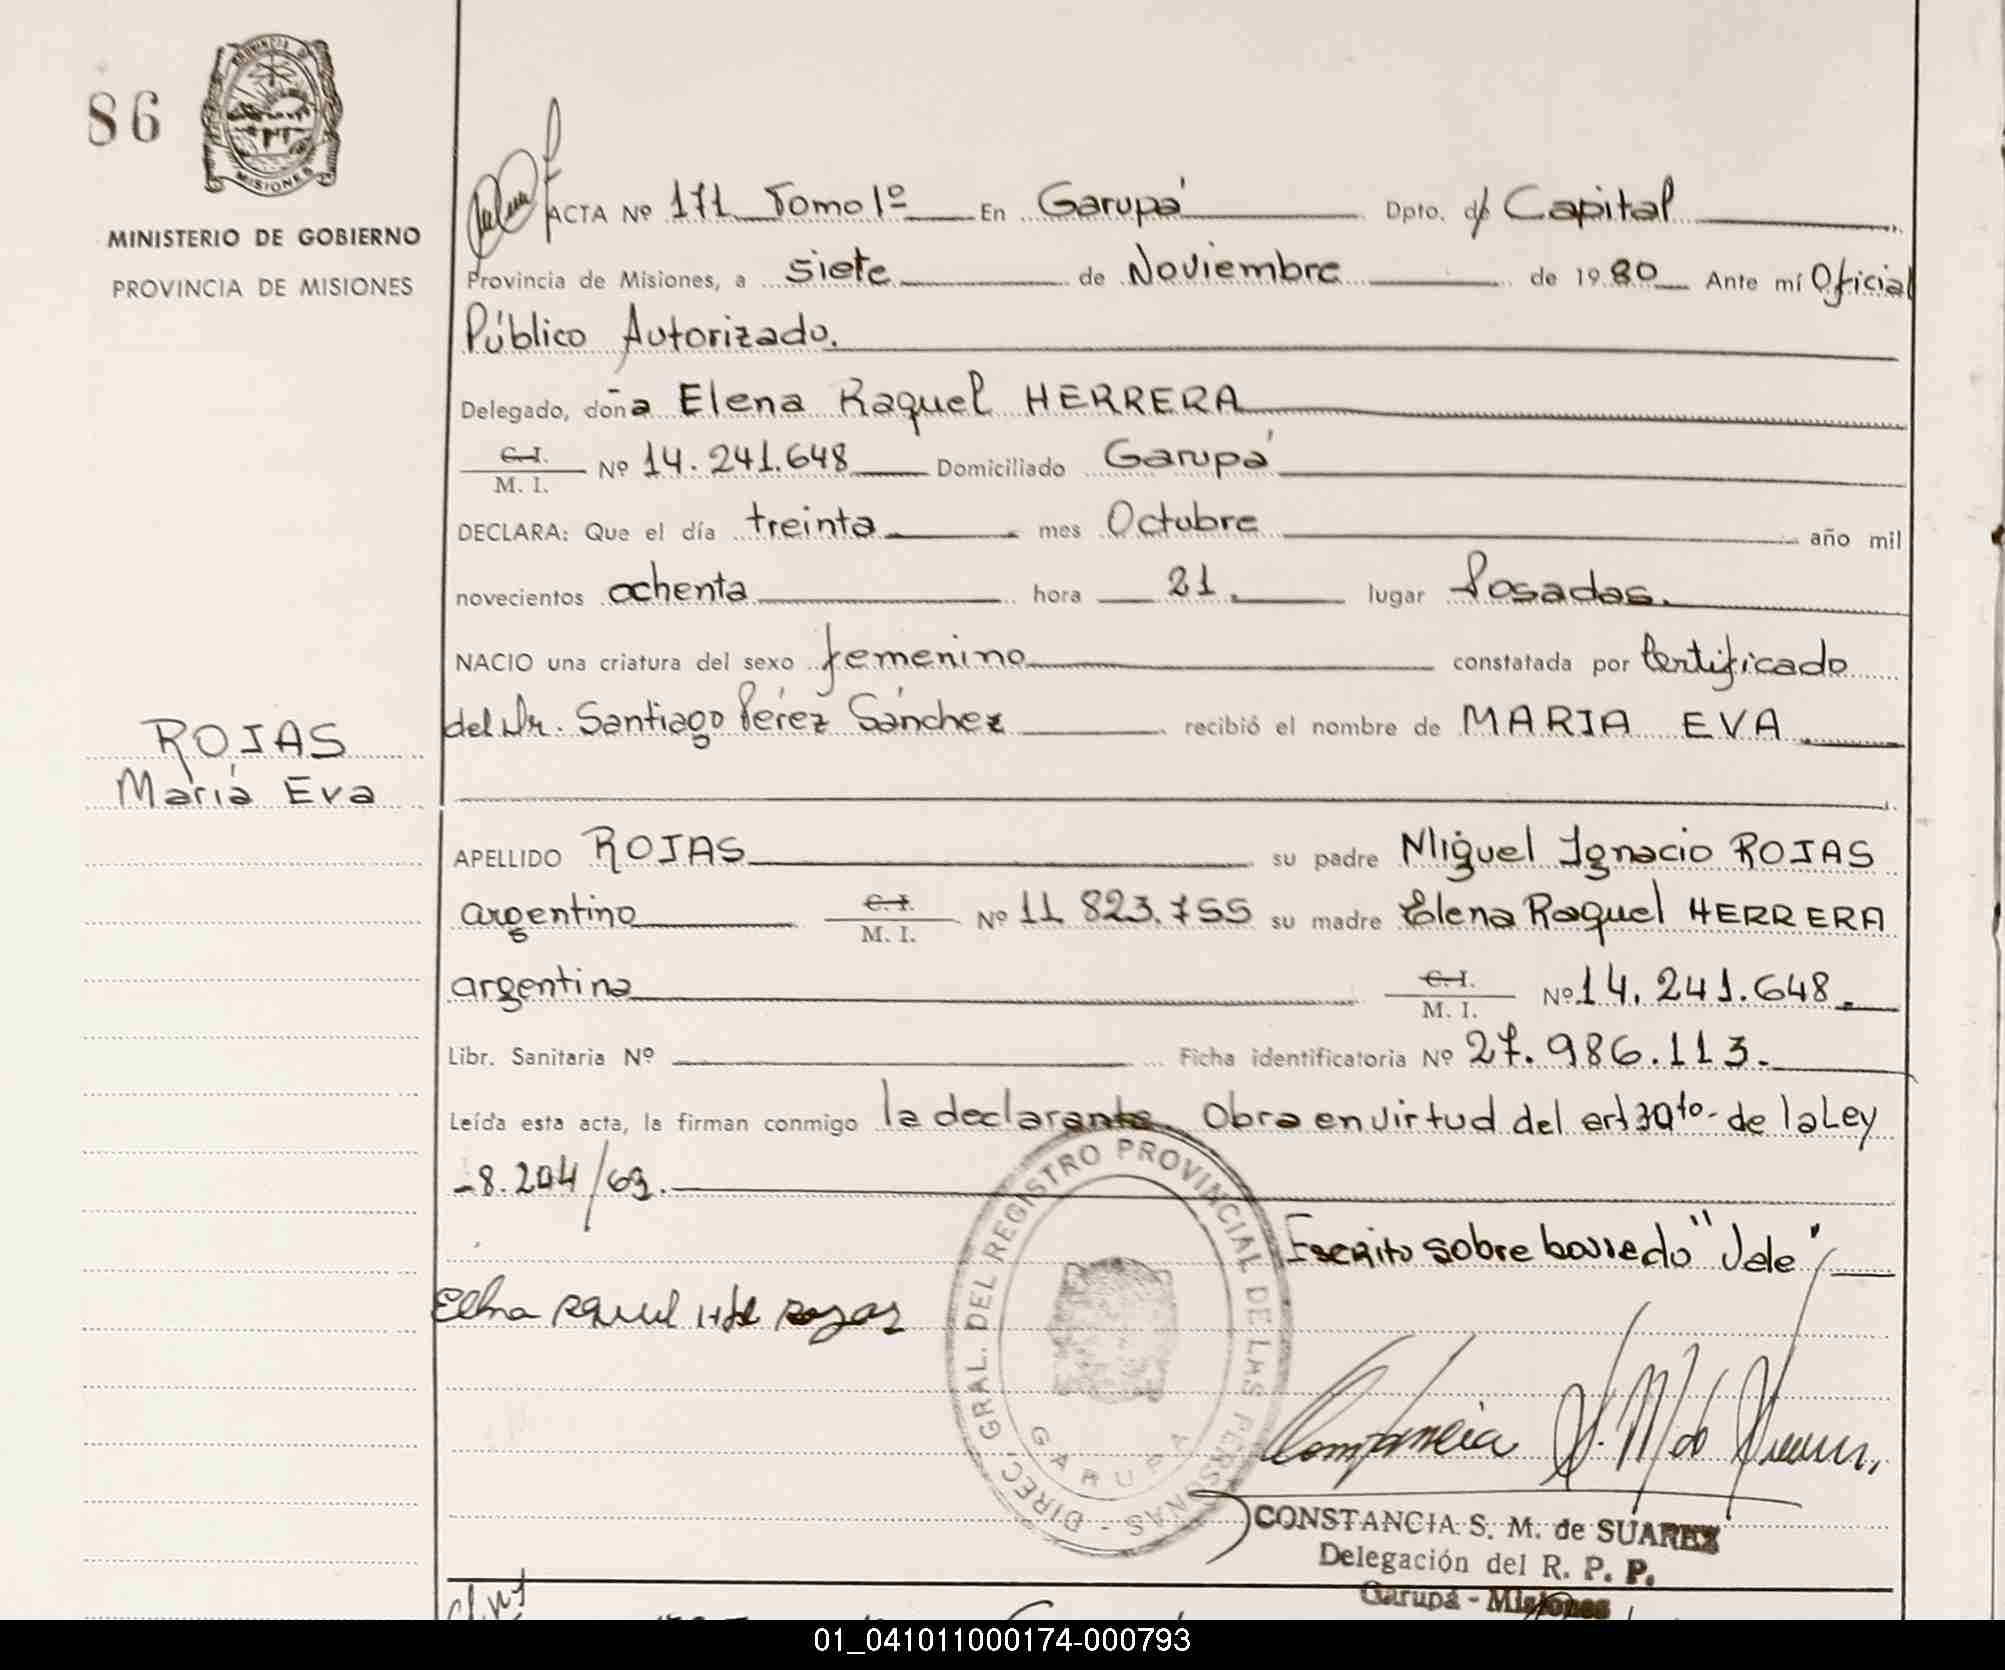 86
PROVINCIA DE
MISIONES
MINISTERIO DE GOBIERNO
PROVINCIA DE MISIONES
ACTA Nº 171 Tomo 1º En Garupá Dpto. d/ Capital
Provincia de Misiones, a siete de Noviembre de 1980 Ante mí Oficial
Público Autorizado.
Delegado, doña Elena Raquel HERRERA
C.I.
M. I. Nº 14.241.648 Domiciliado Garupá
DECLARA: Que el día treinta mes Octubre año mil
novecientos ochenta hora 21. lugar Posadas.
NACIO una criatura del sexo femenino constatada por Certificado
del Dr. Santiago Pérez Sánchez recibió el nombre de MARIA EVA.
ROJAS
María Eva
APELLIDO ROJAS su padre Miguel Ignacio ROJAS
argentino C.I.
M. I. Nº 11 823.755 su madre Elena Raquel HERRERA
argentina C.I.
M. I. Nº 14.241.648.
Libr. Sanitaria Nº Ficha identificatoria Nº 27.986.113.
Leída esta acta, la firman conmigo la declarante. Obra en virtud del art 30to- de la Ley
-8.204/63.
Escrito sobre borrado "Vale"
Elena Raquel H de Rojas
DIREC. GRAL. DEL REGISTRO PROVINCIAL DE LAS PERSONAS -
GARUPA
Constancia S. M. de Suarez
CONSTANCIA S. M. de SUAREZ
Delegación del R. P. P.
Garupá - Misiones
01_041011000174-000793